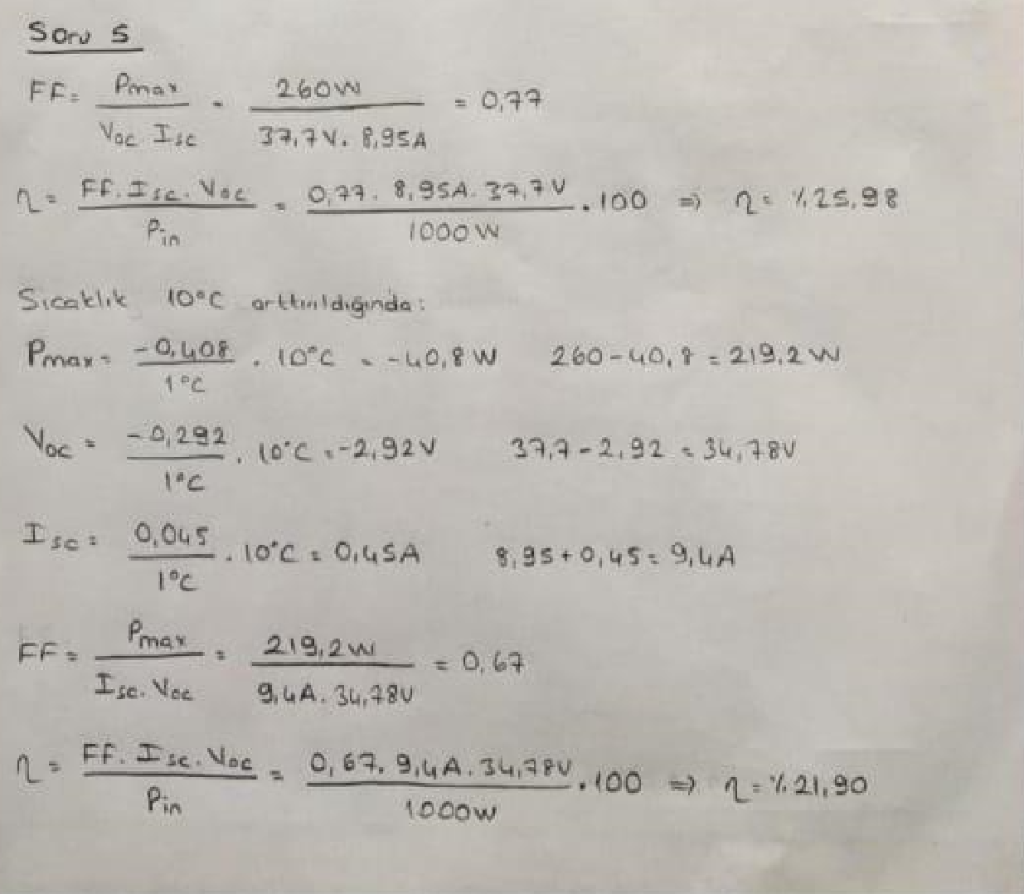 Soru 5
FF = Pmax / Voc Isc = 260W / 37,7V. 8,95A = 0,77
η = FF. Isc. Voc / Pin = 0,77. 8,95A. 37,7V / 1000W .100 => η = %25,98
Sıcaklık 10°C arttırıldığında:
Pmax = -0,408 / 1°C . 10°C = -40,8W 260-40,8 = 219,2W
Voc = -0,292 / 1°C . 10°C = -2,92V 37,7-2,92 = 34,78V
Isc = 0,045 / 1°C . 10°C = 0,45A 8,95+0,45 = 9,4A
FF = Pmax / Isc. Voc = 219,2W / 9,4A. 34,78V = 0,67
η = FF. Isc. Voc / Pin = 0,67. 9,4A. 34,78V / 1000W .100 => η = %21,90